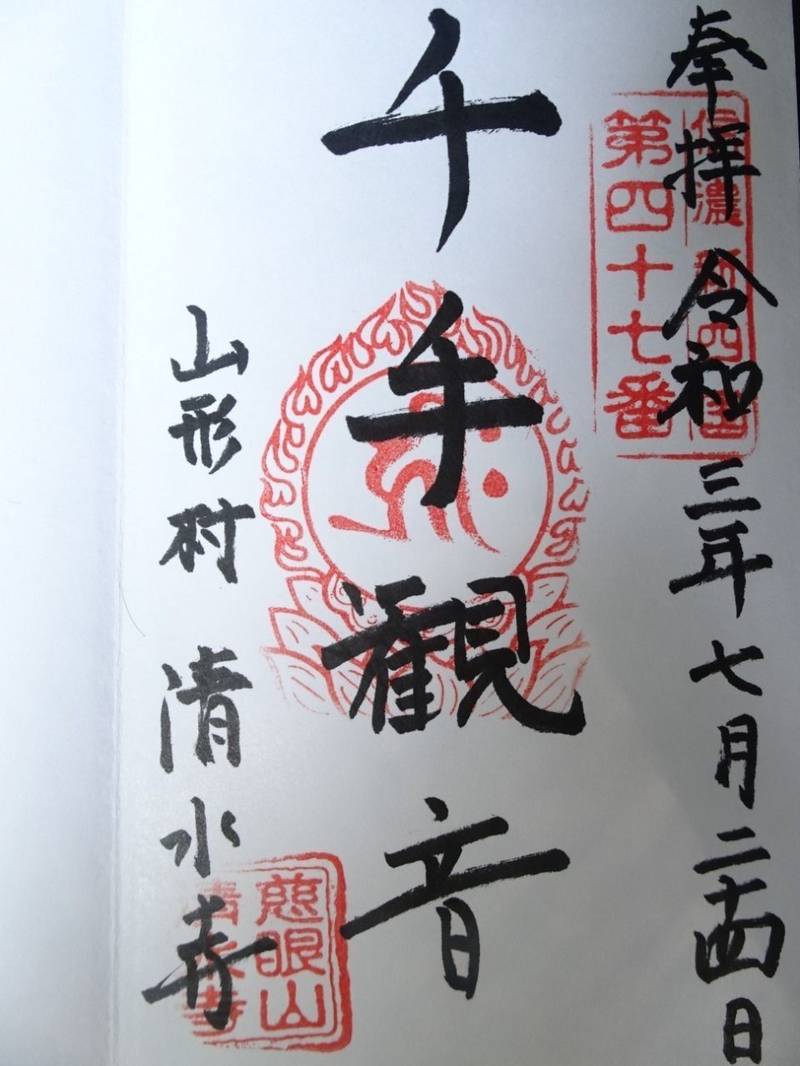 奉拝 令和三年七月二十四日
信濃
第四十七番
千手観音
山形村 清水寺
慈眼山
清水寺